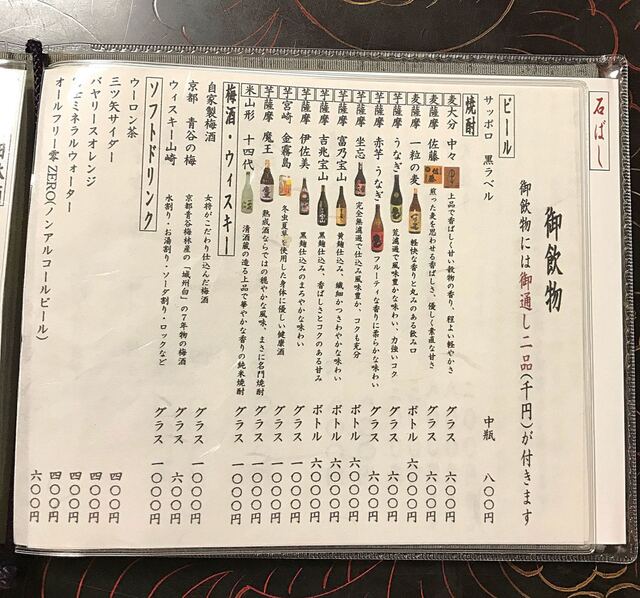 石ばし
御飲物
御飲物には御通し二品(千円)が付きます
ビール
サッポロ 黒ラベル 中瓶 八〇〇円
焼酎
麦 大分 中々 上品で香ばしく甘い穀物の香り、程よい軽やかさ グラス 六〇〇円
麦 薩摩 佐藤 煎った麦を思わせる香ばしさ、優しく素直な甘さ グラス
麦 薩摩 一粒の麦 軽快な香りと丸みのある飲み口 ボトル
芋 薩摩 うなぎ 荒濾過で風味豊かな味わい、力強いコク グラス
芋 薩摩 赤芋・うなぎ フルーティな香りに柔らかな味わい グラス
芋 薩摩 坐忘 完全無濾過で仕込み風味豊か、コクも充分 ボトル
芋 薩摩 富乃宝山 黄麹仕込み、繊細かつさわやかな味わい ボトル
芋 薩摩 吉兆宝山 黒麹仕込み、香ばしさとコクのある甘み ボトル
芋 薩摩 伊佐美 黒麹仕込みのまろやかな味わい グラス 一〇〇〇円
芋 宮崎 金霧島 冬虫夏草を使用した身体に優しい健康酒 グラス 一〇〇〇円
芋 薩摩 魔王 熟成酒ならではの穏やかな風味、まさに名門焼酎 グラス 一〇〇〇円
米 山形 十四代 清酒蔵の造る上品で華やかな香りの純米焼酎 グラス 一〇〇〇円
梅酒・ウィスキー
自家製梅酒 女将がこだわり仕込んだ梅酒
京都 青谷の梅 京都青谷梅林産の「城州白」の7年物の梅酒 グラス 一〇〇〇円
ウィスキー山崎 水割り・お湯割り・ソーダ割り・ロックなど グラス 六〇〇円
グラス 一〇〇〇円
ソフトドリンク
ウーロン茶
三ツ矢サイダー 四〇〇円
バヤリースオレンジ 四〇〇円
ミネラルウォーター 四〇〇円
オールフリー零ZERO(ノンアルコールビール) 六〇〇円